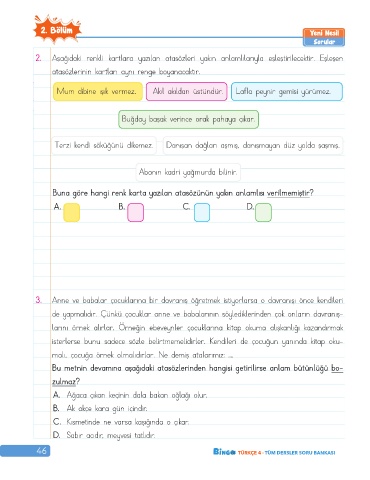 2. Bölüm
Yeni Nesil
Sorular
2. Aşağıdaki renkli kartlara yazılan atasözleri yakın anlamlılarıyla eşleştirilecektir. Eşleşen
atasözlerinin kartları aynı renge boyanacaktır.
Mum dibine ışık vermez.
Akıl akıldan üstündür.
Lafla peynir gemisi yürümez.
Buğday başak verince orak pahaya çıkar.
Terzi kendi söküğünü dikemez.
Danışan dağları aşmış, danışmayan düz yolda şaşmış.
Abanın kadri yağmurda bilinir.
Buna göre hangi renk karta yazılan atasözünün yakın anlamlısı verilmemiştir?
A.
B.
C.
D.
3. Anne ve babalar çocuklarına bir davranış öğretmek istiyorlarsa o davranışı önce kendileri
de yapmalıdır. Çünkü çocuklar anne ve babalarının söylediklerinden çok onların davranış-
larını örnek alırlar. Örneğin ebeveynler çocuklarına kitap okuma alışkanlığı kazandırmak
isterlerse bunu sadece sözle belirtmemelidirler. Kendileri de çocuğun yanında kitap oku-
malı, çocuğa örnek olmalıdırlar. Ne demiş atalarımız: ...
Bu metnin devamına aşağıdaki atasözlerinden hangisi getirilirse anlam bütünlüğü bo-
zulmaz?
A. Ağaca çıkan keçinin dala bakan oğlağı olur.
B. Ak akçe kara gün içindir.
C. Kısmetinde ne varsa kaşığında o çıkar.
D. Sabır acıdır, meyvesi tatlıdır.
46
BiNGO TÜRKÇE 4 - TÜM DERSLER SORU BANKASI